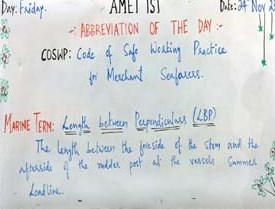 Day: Friday. AMET IST Date: 24 Nov 23
-: ABBREVIATION OF THE DAY :-
COSWP: Code of Safe Working Practice
for Merchant Seafarers.
MARINE TERM: Length between Perpendiculars (LBP)
The length between the foreside of the stem and the
afterside of the rudder post at the vessels summer
loadline.